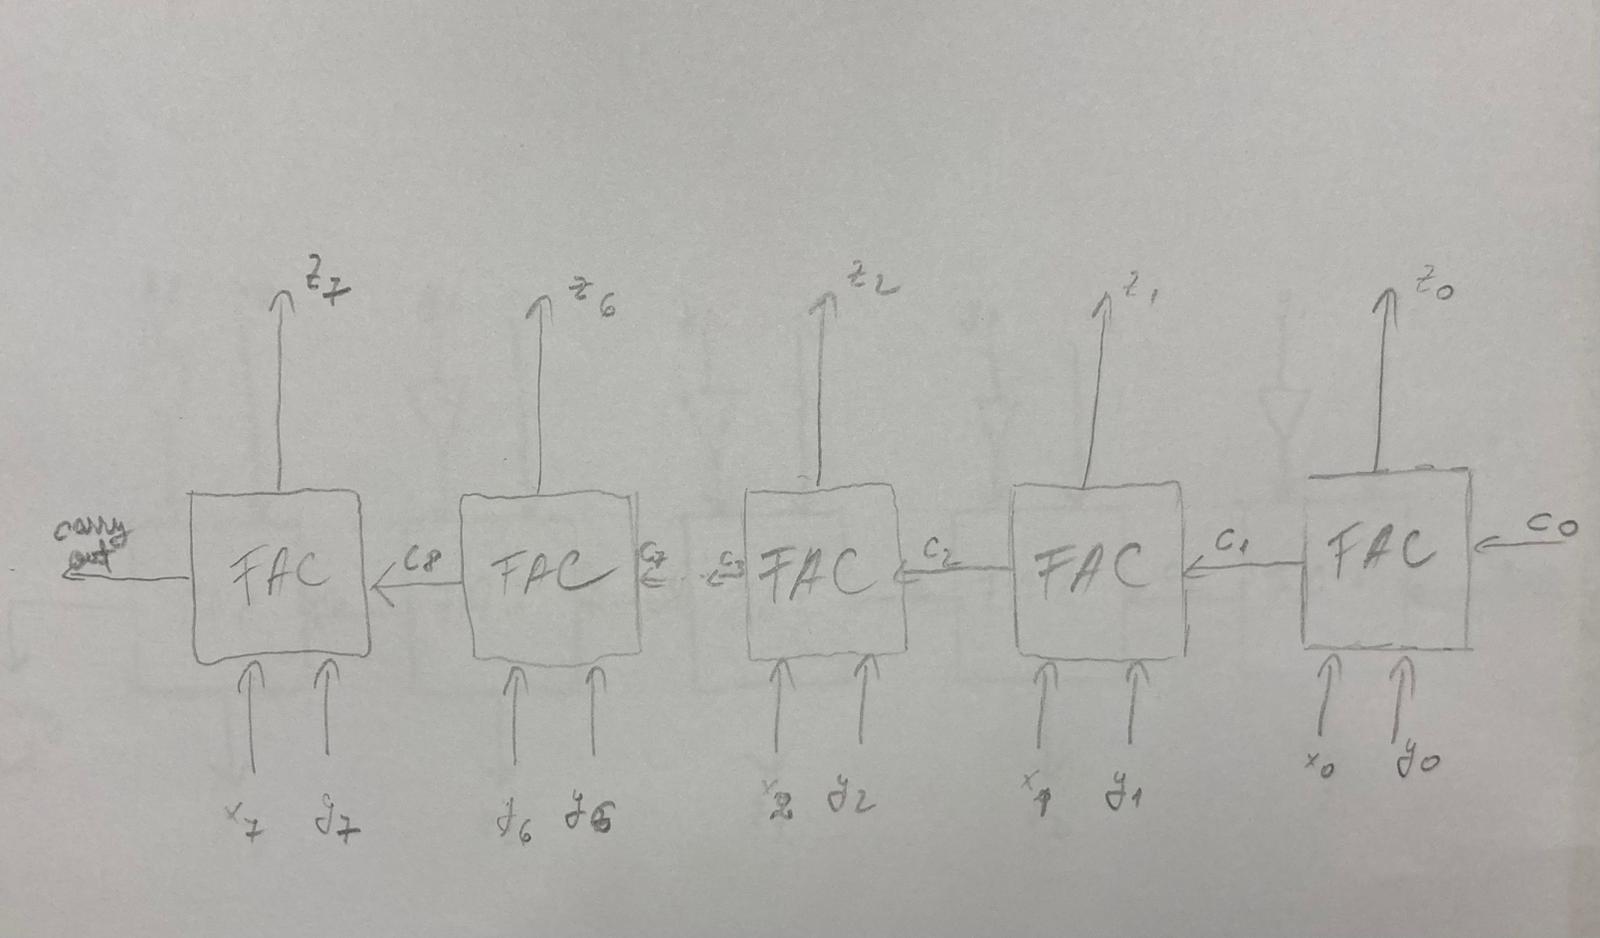 z7 z6 z2 z1 z0
carry out FAC c8 FAC c7 c3 FAC c2 FAC c1 FAC c0
x7 y7 y6 y6 x2 y2 x1 y1 x0 y0